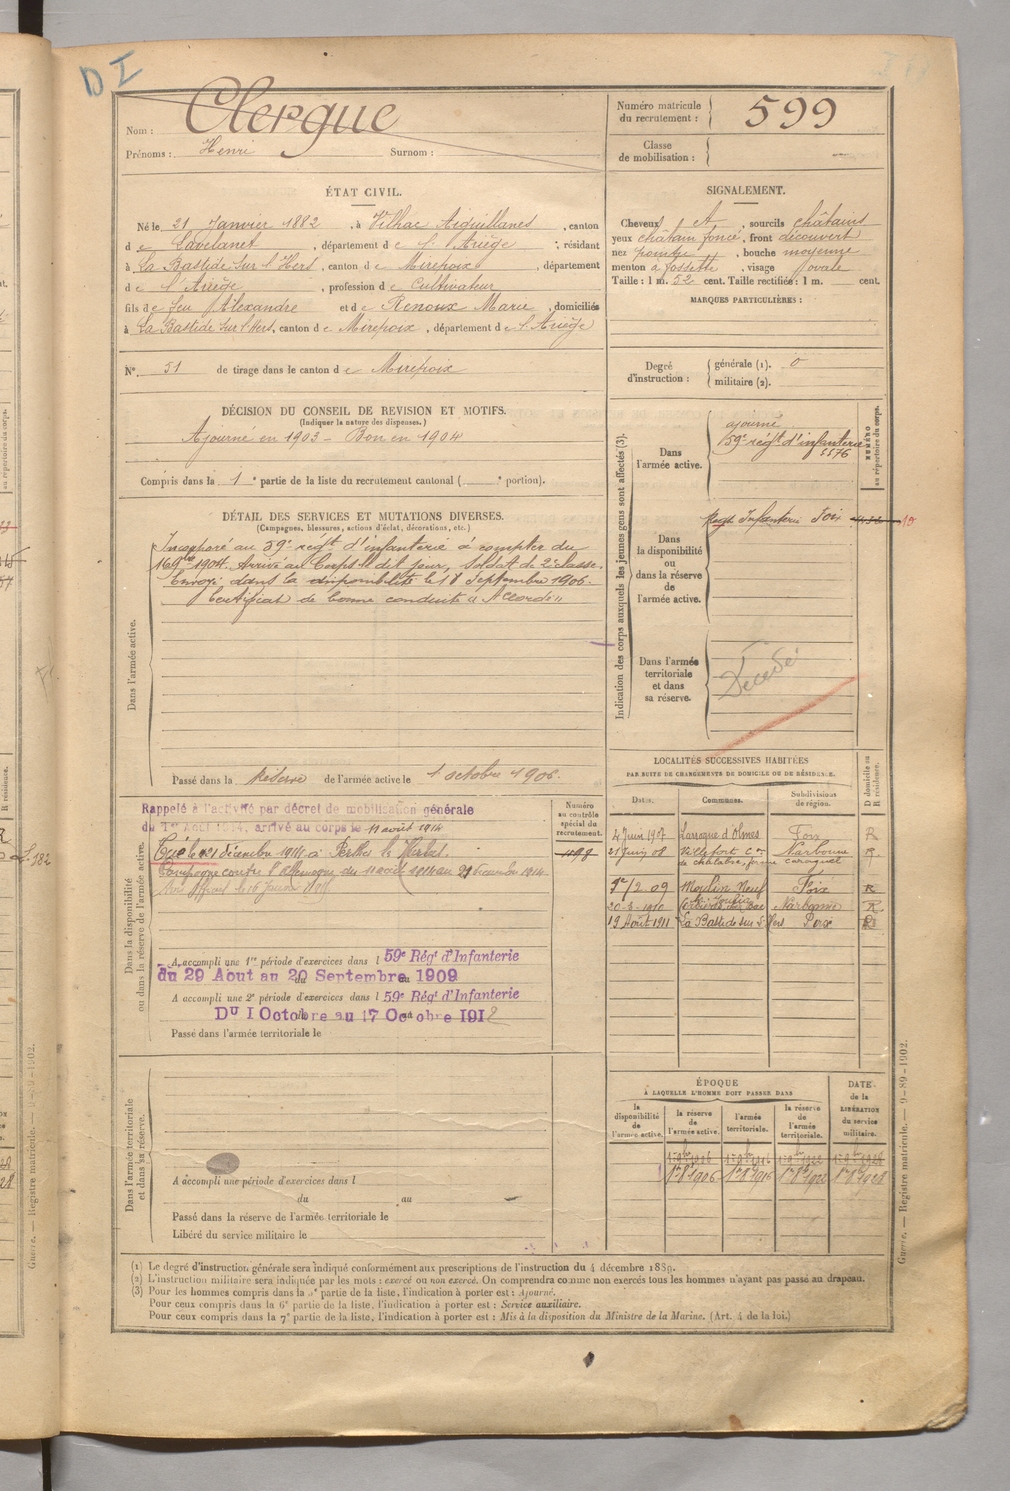 D I
Nom : Clergue
Prénoms : Henri Surnom :
Numéro matricule du recrutement : 599
Classe de mobilisation :
ÉTAT CIVIL.
Né le 21 Janvier 1882, à Vilhac Aiguillanes, canton
de Lavelanet, département de l'Ariège, résidant
à La Bastide sur l'Hers, canton de Mirepoix, département
de l'Ariège, profession de Cultivateur
fils de feu Alexandre et de Renoux Marie, domiciliés
à La Bastide sur l'Hers, canton de Mirepoix, département de l'Ariège
N° 51 de tirage dans le canton de Mirepoix
SIGNALEMENT.
Cheveux et, sourcils châtains
yeux châtain foncé, front découvert
nez pointu, bouche moyenne
menton à fossette, visage ovale
Taille : 1 m. 52 cent. Taille rectifiée : 1 m. cent.
MARQUES PARTICULIÈRES :
Degré d'instruction : générale (1). 0
militaire (2).
DÉCISION DU CONSEIL DE REVISION ET MOTIFS.
(Indiquer la nature des dispenses.)
Ajourné en 1903 - Bon en 1904
Compris dans la 1e partie de la liste du recrutement cantonal ( e portion).
DÉTAIL DES SERVICES ET MUTATIONS DIVERSES.
(Campagnes, blessures, actions d'éclat, décorations, etc.)
Dans l'armée active.
Incorporé au 59e régt d'infanterie à compter du
16 9bre 1904. Arrivé au Corps le dit jour, soldat de 2e classe.
Envoyé dans la disponibilité le 18 Septembre 1906.
Certificat de bonne conduite « Accordé »
Passé dans la réserve de l'armée active le 1 octobre 1906.
Indication des corps auxquels les jeunes gens sont affectés (3).
NUMÉRO au répertoire du corps.
Dans l'armée active.
ajourné
59e régt d'infanterie
5576
Dans la disponibilité ou dans la réserve de l'armée active.
Régt Infanterie Foix
Dans l'armée territoriale et dans sa réserve.
Décédé
Dans la disponibilité ou dans la réserve de l'armée active.
Rappelé à l'activité par décret de mobilisation générale
du 1er Août 1914, arrivé au corps le 11 août 1914
Tué le 21 décembre 1914 à Perthes les Hurlus.
Campagne contre l'Allemagne du 11 août 1914 au 21 décembre 1914
Numéro au contrôle spécial du recrutement.
A accompli une 1re période d'exercices dans l 59e Régt d'Infanterie
du 29 Aout au 20 Septembre 1909
A accompli une 2e période d'exercices dans l 59e Régt d'Infanterie
Du 1 Octobre au 17 Octobre 1912
Passé dans l'armée territoriale le
LOCALITÉS SUCCESSIVES HABITÉES
PAR SUITE DE CHANGEMENTS DE DOMICILE OU DE RÉSIDENCE.
D domicile ou R résidence.
Dates. Communes. Subdivisions de région.
4 Juin 1907 Laroque d'Olmes Foix R
21 Juin 08 Villefort Con de Chalabre, ferme Narbonne R
2-09 Moulin Neuf Foix R
20-3-1910 Narbonne R
19 Août 1911 La Bastide sur l'Hers Foix
Dans l'armée territoriale et dans sa réserve.
A accompli une période d'exercices dans l
du au
Passé dans la réserve de l'armée territoriale le
Libéré du service militaire le
ÉPOQUE
A LAQUELLE L'HOMME DOIT PASSER DANS
la disponibilité de l'armée active.
la réserve de l'armée active.
l'armée territoriale.
la réserve de l'armée territoriale.
DATE de la LIBÉRATION du service militaire.
1er 8bre 1906 1er 8bre 1916 1er 8bre 1922 1er 8bre 1928
(1) Le degré d'instruction générale sera indiqué conformément aux prescriptions de l'instruction du 4 décembre 1889.
(2) L'instruction militaire sera indiquée par les mots : exercé ou non exercé. On comprendra comme non exercés tous les hommes n'ayant pas passé au drapeau.
(3) Pour les hommes compris dans la 5e partie de la liste, l'indication à porter est : Ajourné.
Pour ceux compris dans la 6e partie de la liste, l'indication à porter est : Service auxiliaire.
Pour ceux compris dans la 7e partie de la liste, l'indication à porter est : Mis à la disposition du Ministre de la Marine. (Art. 4 de la loi.)
Guerre. — Registre matricule. — 9-89-1902.